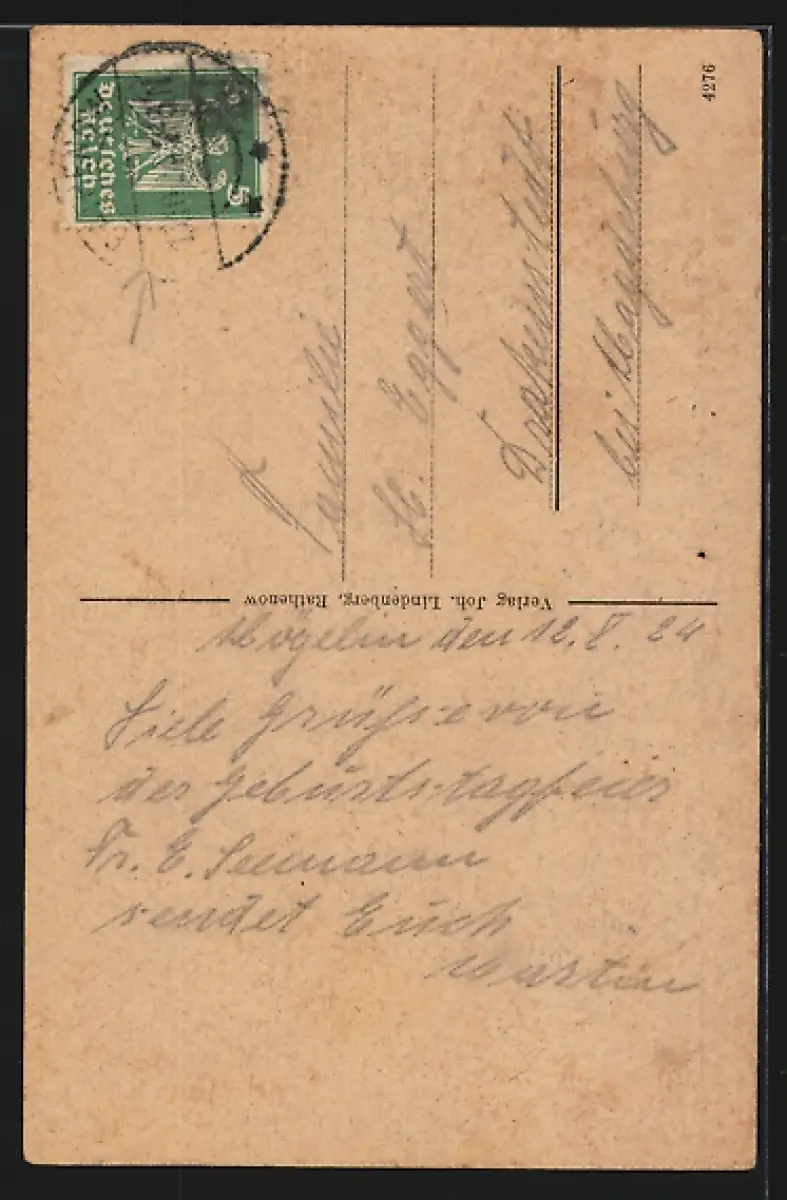 4276
Deutsches
Reich
5
Familie
H. Eggert
Dodendstedt
bei Magdeburg
Verlag Joh. Lindenberg, Rathenow
Mögelin den 12. X. 24
Viele Grüße von
der Geburtstagfeier
Fr. E. Seemann
sendet Euch
Martin